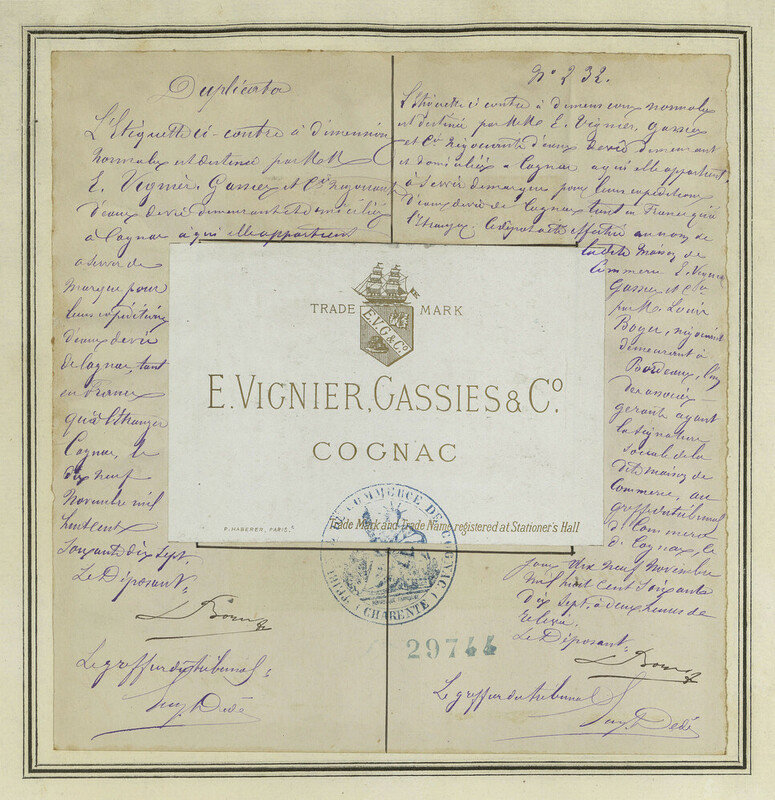 Duplicata
L'Etiquette ci-contre à dimension
normales est destinée par MM
E. Vignier, Gassies et Cie Négociants
d'eaux de vie demeurant et domiciliés
à Cognac à qui elle appartient
à servir de
marque pour
leurs expéditions
d'eaux de vie
de Cognac, tant
en France
qu'à l'étranger
Cognac, le
dix neuf
Novembre mil
huit cent
soixante dix sept.
Le Déposant.
Le greffier du tribunal.
No 232.
L'Etiquette ci contre à dimensions normales
est destinée par MM. E. Vignier, Gassies
et Cie Négociants d'eaux de vie demeurant
et domiciliés à Cognac à qui elle appartient
à servir de marque pour leurs expéditions
d'eaux de vie de Cognac tant en France qu'à
l'Etranger. Le dépôt a été effectué au nom de
la dite Maison de
Commerce E. Vignier
Gassies et Cie
par M. Louis
Boyer, négociant
demeurant à
Bordeaux, l'un
des associés
gérants ayant
la signature
social de la
dite maison de
Commerce, au
greffe du tribunal
de Commerce
de Cognac, le
jour dix neuf Novembre
mil huit cent soixante
dix sept, à deux heures de
relevée.
Le Déposant.
Le greffier du tribunal
TRADE MARK
E.V.G & Co
E. VIGNIER, GASSIES & Co.
COGNAC
P. HABERER, PARIS.
Trade Mark and Trade Name registered at Stationer's Hall
DE COMMERCE DE COGNAC
CHARENTE
29744